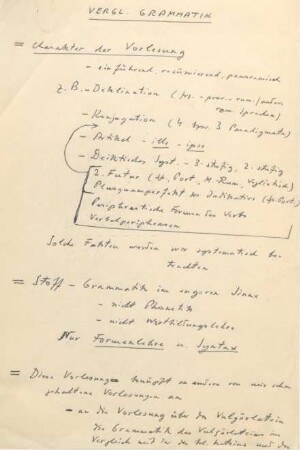 VERGL. GRAMMATIK
= Charakter der Vorlesung
- einführend, resümierend, panoramisch
z. B. - Deklination (
- Konjugation (4 spr. 3 Paradigmata)
- Artikel - ille - ipse
- Deiktisches Syst. - 3-stufig, 2-stufig
2. Futur (It. Port., M. Rum., Vegliotisch)
Plusquamperfekt im Indikativ (Port.)
Periphrastische Formen des Verbs
Verbalperiphrasen
Solche Fakten werden wir systematisch be-
trachten
= Stoff - Grammatik im engeren Sinne
- nicht Phonetik
- nicht Wortbildungslehre
Nur Formenlehre u. Syntax
= Diese Vorlesung knüpft an andere von mir schon
gehaltene Vorlesungen an
- an die Vorlesung über das Vulgärlatein
die Grammatik des Vulgärlateins im
Vergleich mit der des kl. Lateins und der